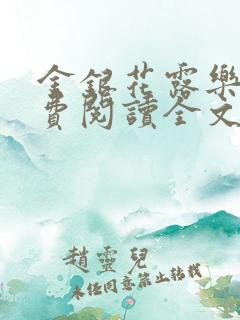 金銀花露樂
費閱讀全文
趙靈兒
未任同意禁止转载